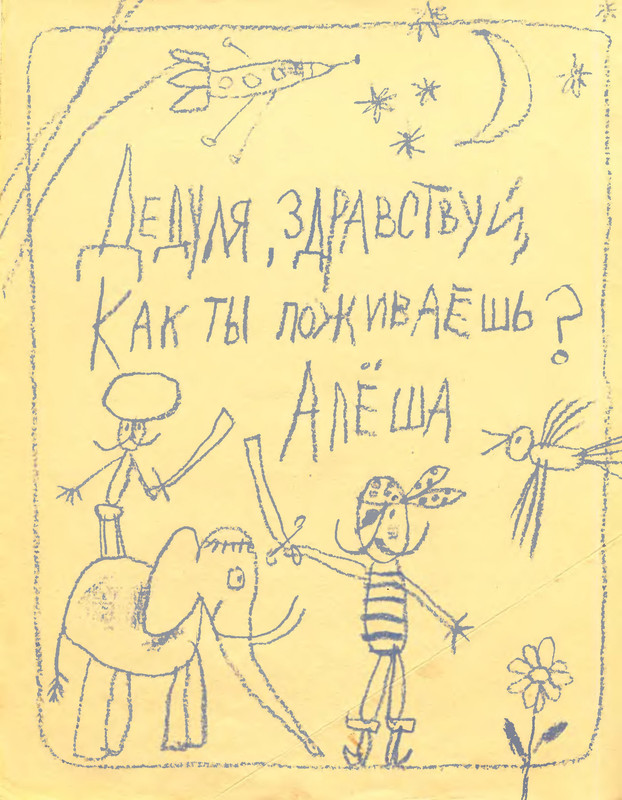 Дедуля, здравствуй,
Как ты поживаешь?
Алёша